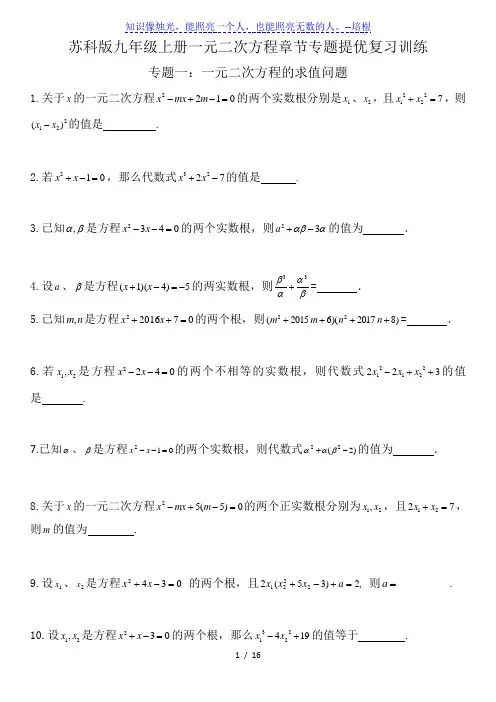 知识像烛光，能照亮一个人，也能照亮无数的人。--培根
苏科版九年级上册一元二次方程章节专题提优复习训练
专题一：一元二次方程的求值问题
1.关于x的一元二次方程x²-mx+2m-1=0的两个实数根分别是x₁、x₂，且x₁²+x₂²=7，则
(x₁-x₂)²的值是　　.
2.若x²+x-1=0，那么代数式x³+2x²-7的值是　　.
3.已知α,β是方程x²-3x-4=0的两个实数根，则a²+αβ-3α的值为　　.
4.设a、β是方程(x+1)(x-4)=-5的两实数根，则β³/α+α³/β=　　.
5.已知m,n是方程x²+2016x+7=0的两个根，则(m²+2015m+6)(n²+2017n+8)=　　.
6.若x₁,x₂是方程x²-2x-4=0的两个不相等的实数根，则代数式2x₁²-2x₁+x₂²+3的值
是　　.
7.已知α、β是方程x²-x-1=0的两个实数根，则代数式α²+α(β²-2)的值为　　.
8.关于x的一元二次方程x²-mx+5(m-5)=0的两个正实数根分别为x₁,x₂，且2x₁+x₂=7，
则m的值为　　.
9.设x₁、x₂是方程x²+4x-3=0 的两个根，且2x₁(x₂²+5x₂-3)+a=2, 则a=________.
10.设x₁,x₂是方程x²+x-3=0的两个根，那么x₁³-4x₂²+19的值等于　　.
1 / 16